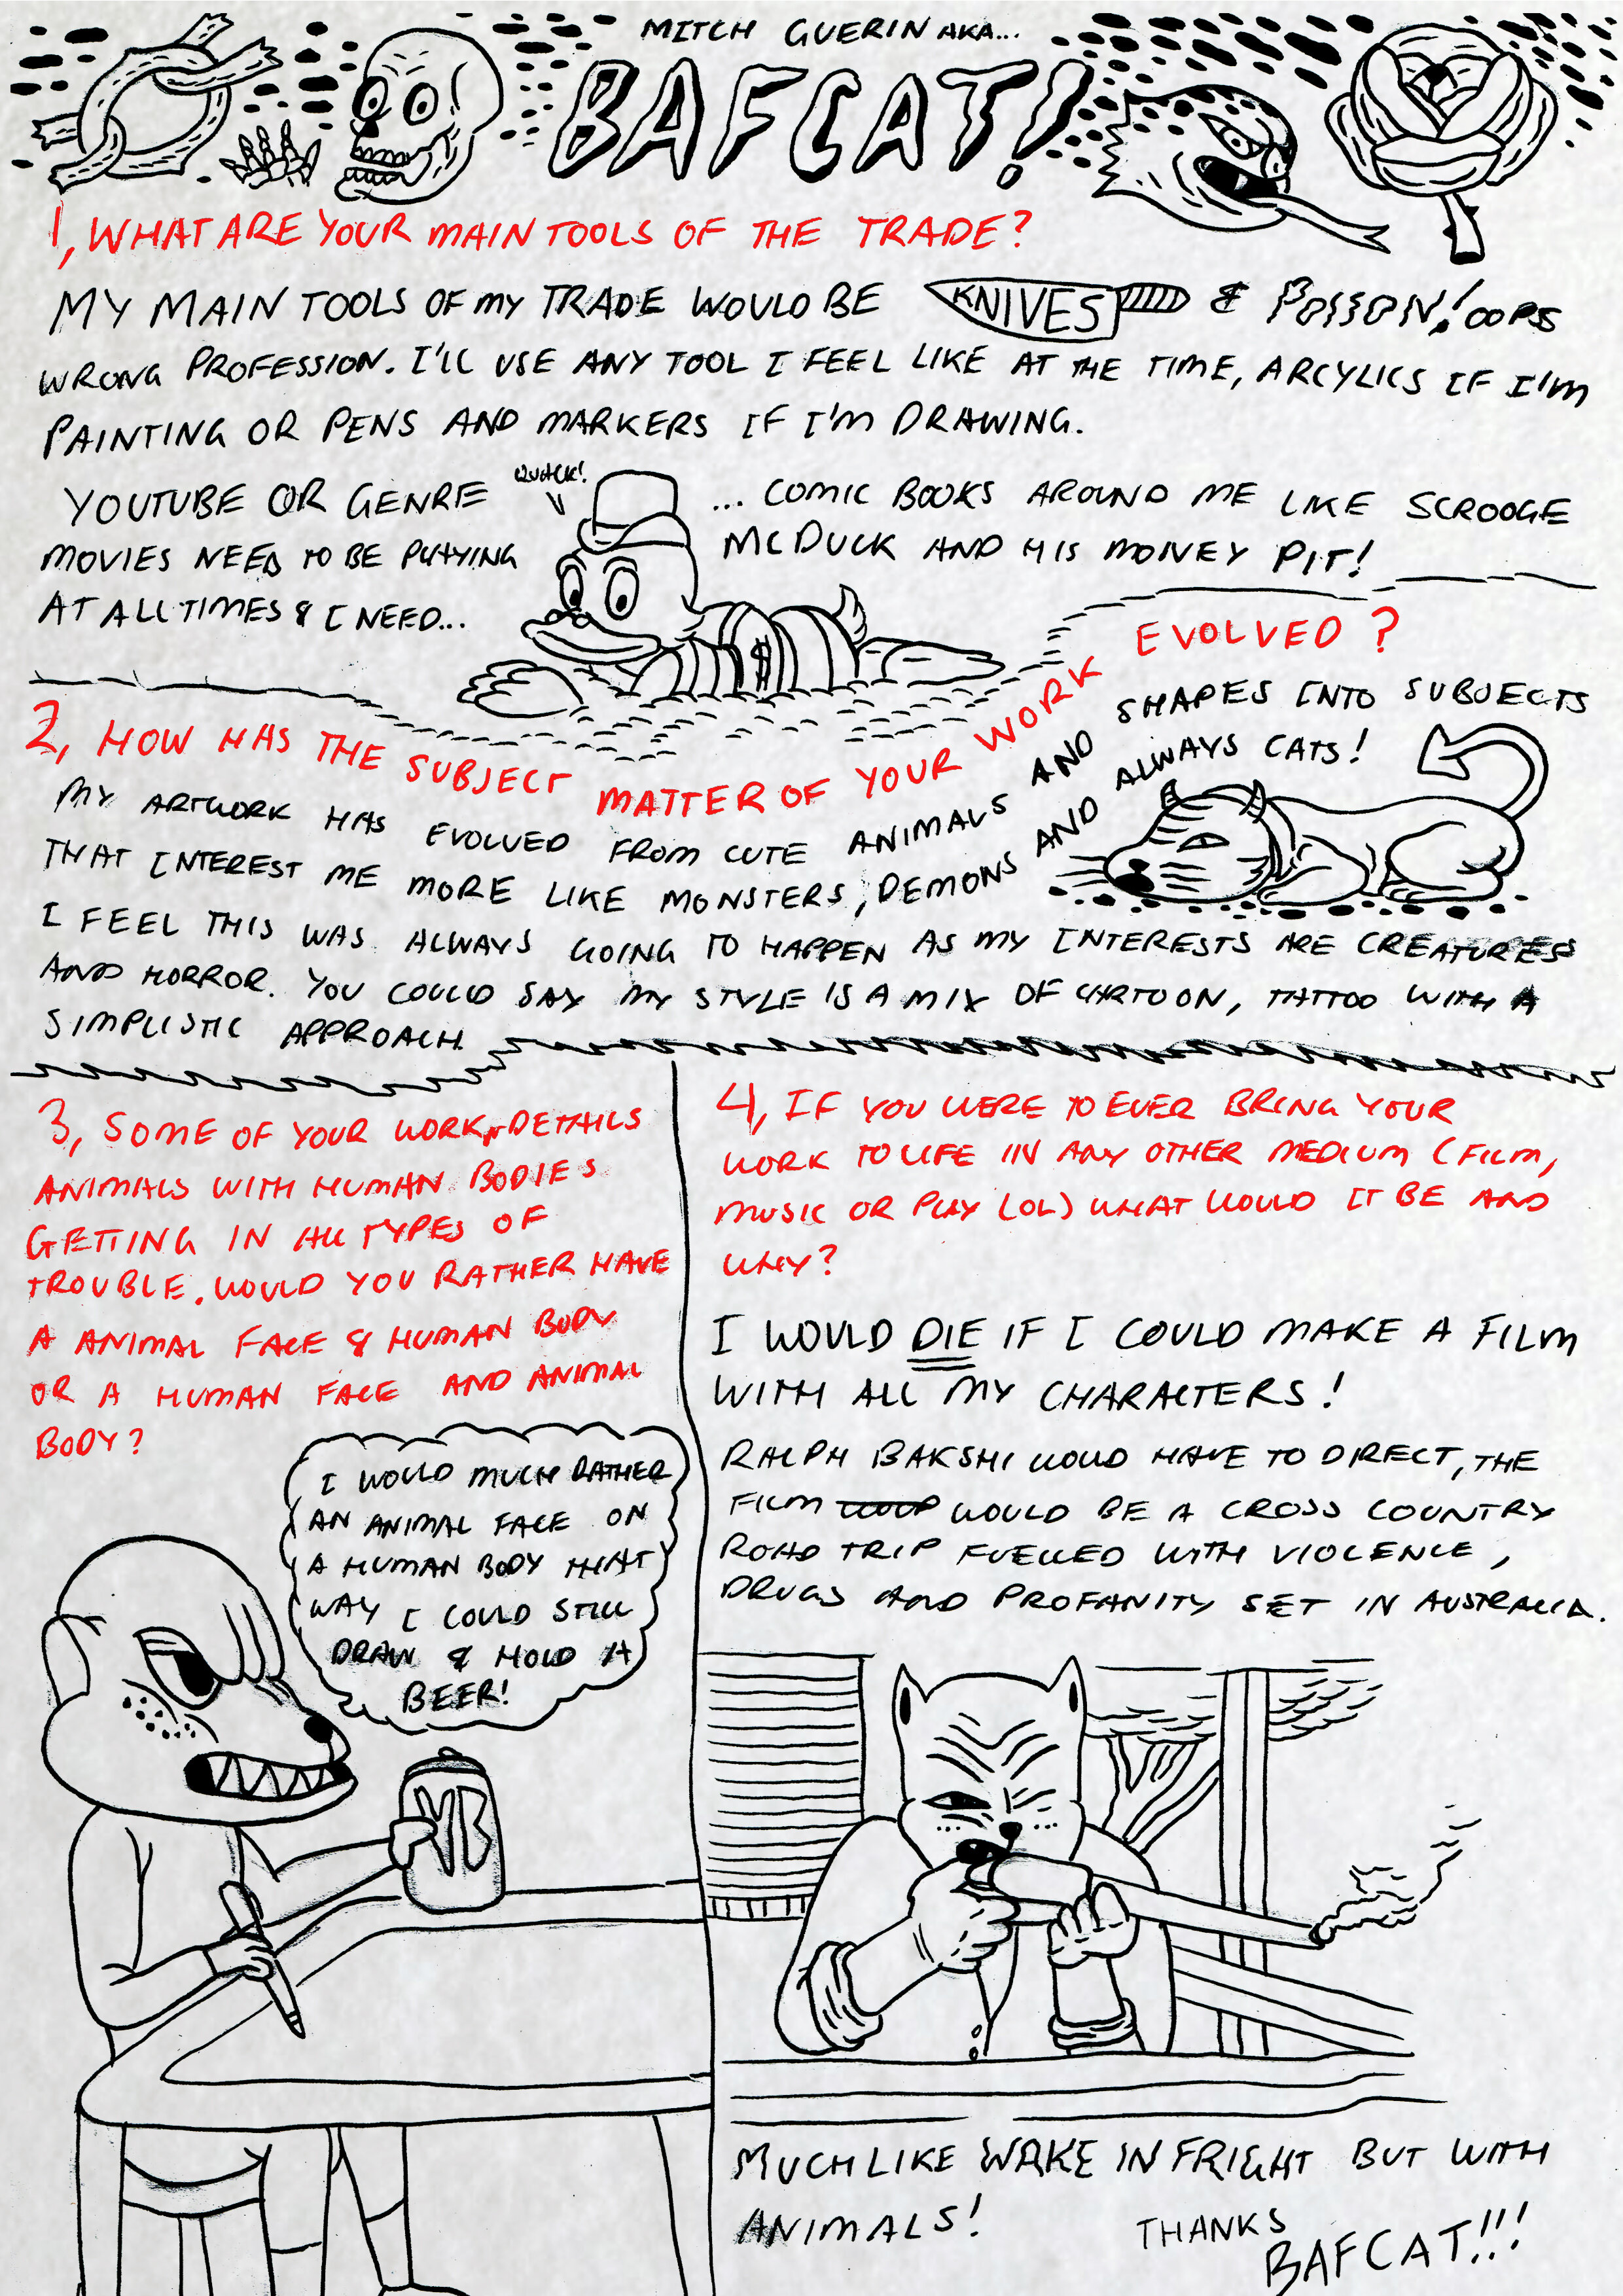 MITCH GUERIN AKA...
BAFCAT!
1, WHAT ARE YOUR MAIN TOOLS OF THE TRADE?
MY MAIN TOOLS OF MY TRADE WOULD BE KNIVES & POISON! OOPS
WRONG PROFESSION. I'LL USE ANY TOOL I FEEL LIKE AT THE TIME, ARCYLICS IF I'M
PAINTING OR PENS AND MARKERS IF I'M DRAWING.
YOUTUBE OR GENRE
MOVIES NEED TO BE PLAYING
AT ALL TIMES & I NEED...
QUACK!
... COMIC BOOKS AROUND ME LIKE SCROOGE
MCDUCK AND HIS MONEY PIT!
2, HOW HAS THE SUBJECT MATTER OF YOUR WORK EVOLVED?
MY ARTWORK HAS EVOLVED FROM CUTE ANIMALS AND SHAPES INTO SUBJECTS
THAT INTEREST ME MORE LIKE MONSTERS, DEMONS AND ALWAYS CATS!
I FEEL THIS WAS ALWAYS GOING TO HAPPEN AS MY INTERESTS ARE CREATURES
AND HORROR. YOU COULD SAY MY STYLE IS A MIX OF CARTOON, TATTOO WITH A
SIMPLISTIC APPROACH.
3, SOME OF YOUR WORK DETAILS
ANIMALS WITH HUMAN BODIES
GETTING IN ALL TYPES OF
TROUBLE. WOULD YOU RATHER HAVE
A ANIMAL FACE & HUMAN BODY
OR A HUMAN FACE AND ANIMAL
BODY?
I WOULD MUCH RATHER
AN ANIMAL FACE ON
A HUMAN BODY THAT
WAY I COULD STILL
DRAW & HOLD A
BEER!
VB
4, IF YOU WERE TO EVER BRING YOUR
WORK TO LIFE IN ANY OTHER MEDIUM (FILM,
MUSIC OR PLAY LOL) WHAT WOULD IT BE AND
WHY?
I WOULD DIE IF I COULD MAKE A FILM
WITH ALL MY CHARACTERS!
RALPH BAKSHI WOULD HAVE TO DIRECT, THE
FILM WOULD BE A CROSS COUNTRY
ROAD TRIP FUELLED WITH VIOLENCE,
DRUGS AND PROFANITY SET IN AUSTRALIA.
MUCH LIKE WAKE IN FRIGHT BUT WITH
ANIMALS!
THANKS
BAFCAT!!!